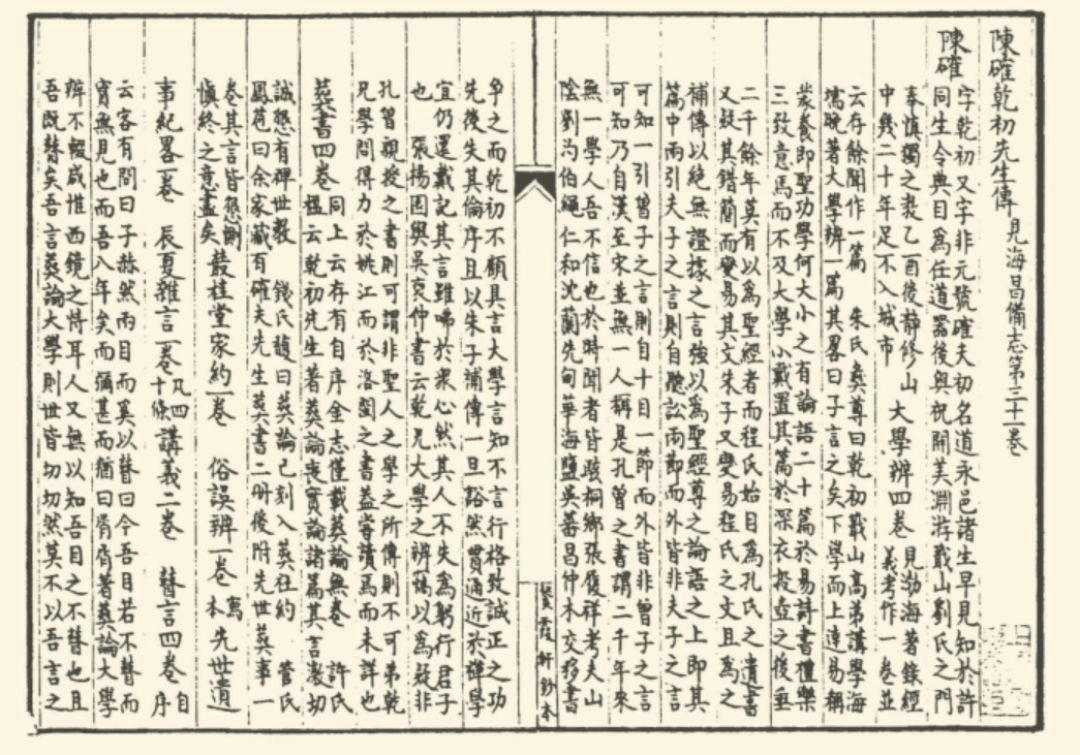 陳確乾初先生傳 見海昌備志第三十一卷
陳確 字乾初又字非元號確夫初名道永邑諸生早見知於許
同生令典目為任道器後與祝開美淵游蕺山劉氏之門
奉慎獨之教乙酉後靜修山
中幾二十年足不入城市 大學辨四卷 見渤海著錄經
義考作一卷並
云存餘聞作一篇 朱氏彝尊曰乾初蕺山高弟講學海
壖晚著大學辨一篇其畧曰子言之矣下學而上達易稱
蒙養即聖功學何大小之有論語二十篇於易詩書禮樂
三致意焉而不及大學小戴置其篇於深衣投壺之後垂
二千餘年莫有以為聖經者而程氏始目為孔氏之遺書
又疑其錯簡而變易其文朱子又變易程氏之文且為之
補傳以絕無證據之言強以為聖經尊之論語之上即其
篇中兩引夫子之言則自聽訟兩節而外皆非夫子之言
可知一引曾子之言則自十目一節而外皆非曾子之言
可知乃自漢至宋並無一人稱是孔曾之書謂二千年來
無一學人吾不信也於時聞者皆駭桐鄉張履祥考夫山
陰劉汋伯繩仁和沈蘭先甸華海鹽吳蕃昌仲木交移書
賢霞軒鈔本
爭之而乾初不顧具言大學言知不言行格致誠正之功
先後失其倫序且以朱子補傳一旦豁然貫通近於禪學
宜仍還戴記其言雖咈於衆心然其人不失為躬行君子
也 張楊園與吳裒仲書云乾兄大學之辨鄙以為疑非
孔曾親授之書則可謂非聖人之學之所傳則不可弟乾
兄學問得力於姚江而於洛閩之書蓋嘗讀焉而未詳也
葬書四卷 同上云存有自序金志僅載葬論無卷 許氏
楹云乾初先生著葬論喪實論諸篇其言裂切
誠懇有裨世教 錢氏馥曰葬論已刻入葬社約 管氏
鳳苞曰余家藏有確夫先生葬書二册後附先世葬事一
卷其言皆懇惻
慎終之意盡矣 叢桂堂家約一卷 俗誤辨一卷 寓本 先世遺
事紀畧一卷 辰夏雜言一卷 凡四
十條 講義二卷 瞽言四卷 自
序
云客有問曰子赫然兩目而奚以瞽曰今吾目若不瞽而
實無見也而吾八年矣而彌甚而猶曰脣脣著葬論大學
辨不輟蔑惟西鏡之恃耳人又無以知吾目之不瞽也且
吾既瞽矣吾言葬論大學則世皆切切然莫不以吾言之